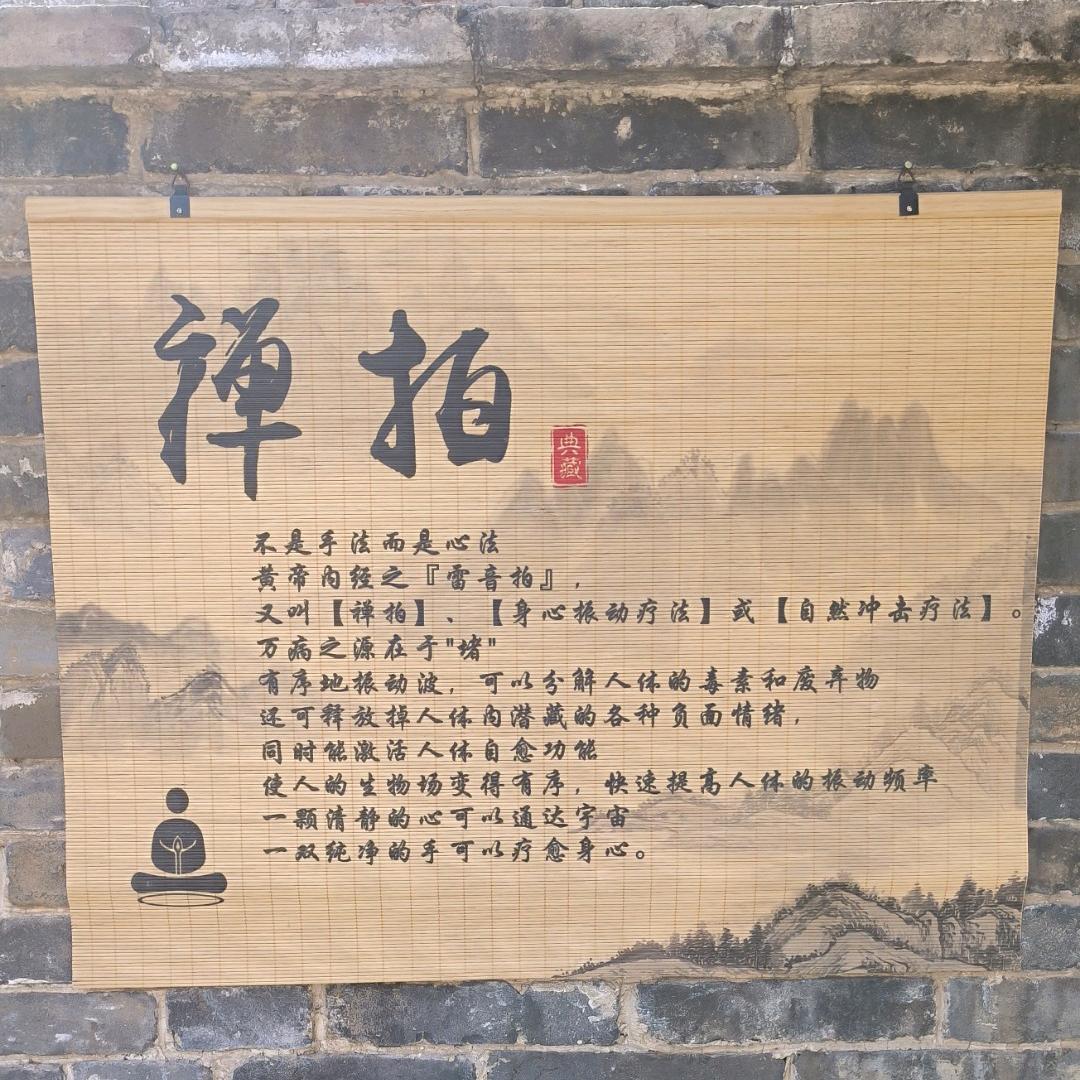 禅拍
典藏
不是手法而是心法
黄帝内经之『雷音拍』,
又叫【禅拍】、【身心振动疗法】或【自然冲击疗法】。
万病之源在于"堵"
有序地振动波，可以分解人体的毒素和废弃物
还可释放掉人体内潜藏的各种负面情绪,
同时能激活人体自愈功能
使人的生物场变得有序，快速提高人体的振动频率
一颗清静的心可以通达宇宙
一双纯净的手可以疗愈身心。